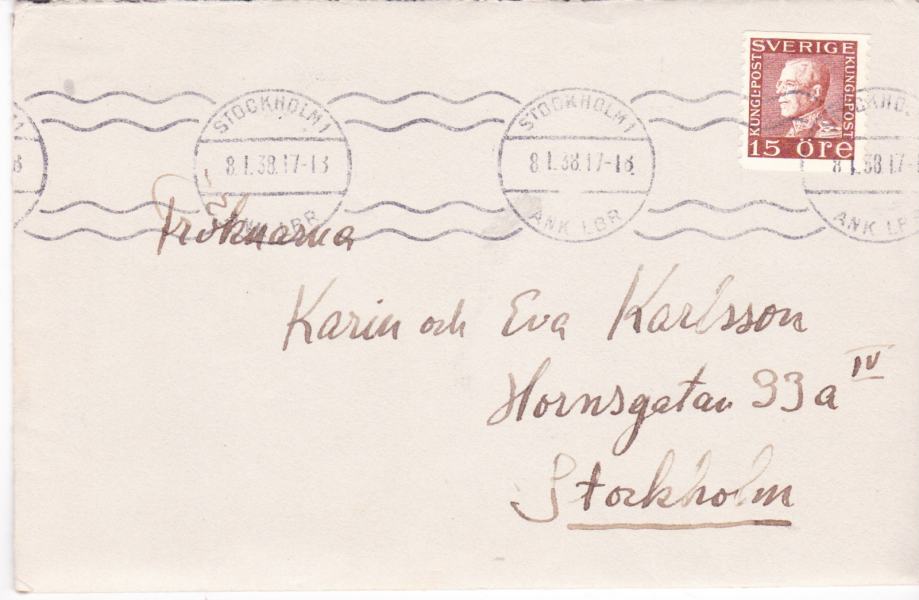 SVERIGE
KUNGL·POST
KUNGL·POST
15 ÖRE
STOCKHOLM 1
8.1.38.17-18
ANK LBR
STOCKHOLM 1
8.1.38.17-18
ANK LBR
8.1.38.17-
ANK LB
Fröknarna
Karin och Eva Karlsson
Hornsgatan 33a IV
Stockholm